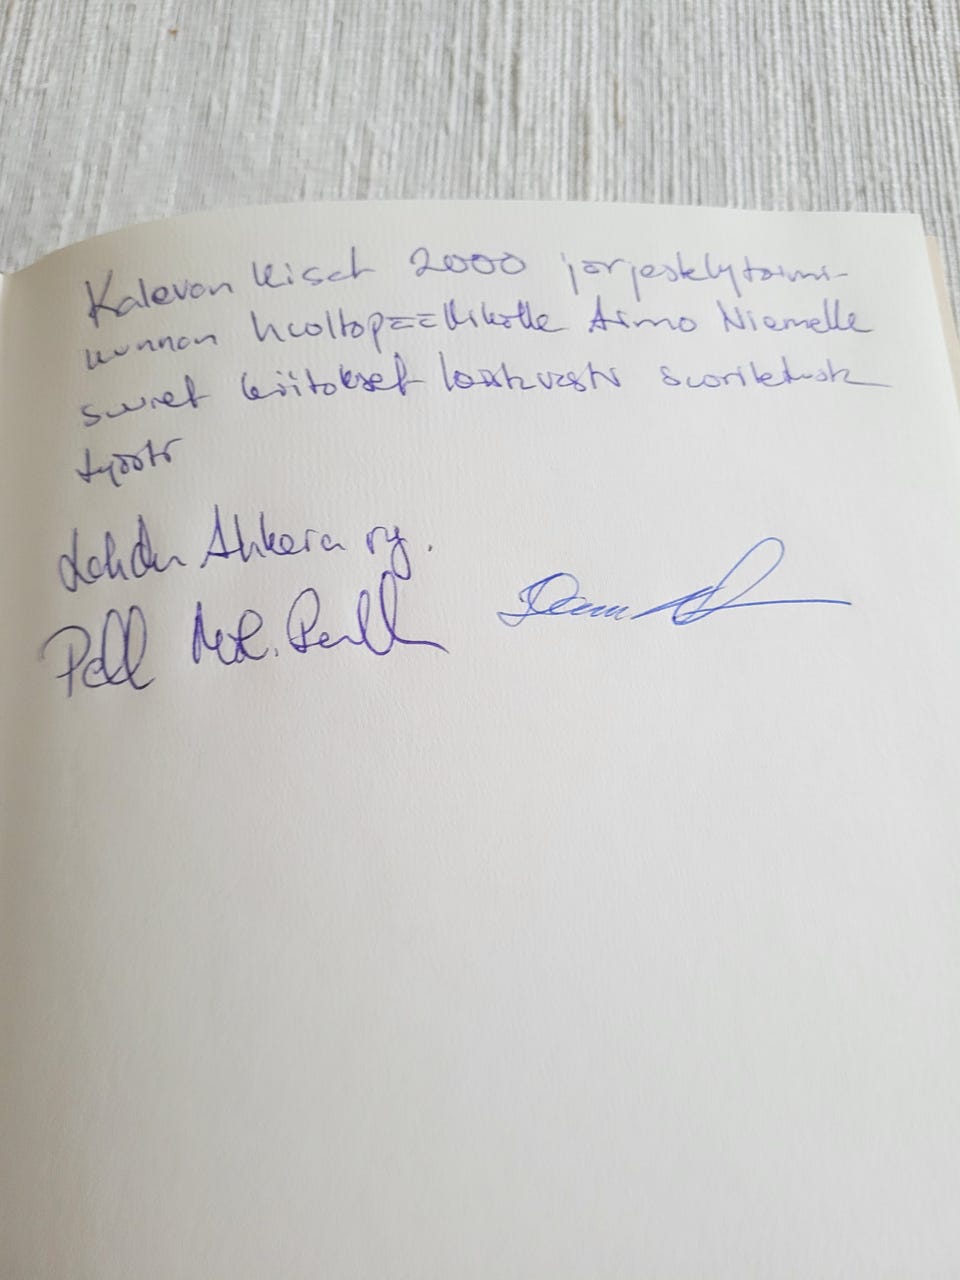 Kalevan kisat 2000 järjestelytoimi-
kunnan huoltopäällikölle Aimo Niemelle
suuret kiitokset laskuvasta suoritetusta
työstä
Lahden Ahkera ry.